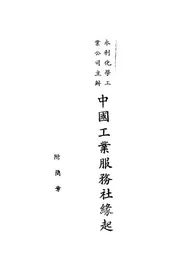 永利化學工
業公司主辦
中國工業服務社緣起
附簡章